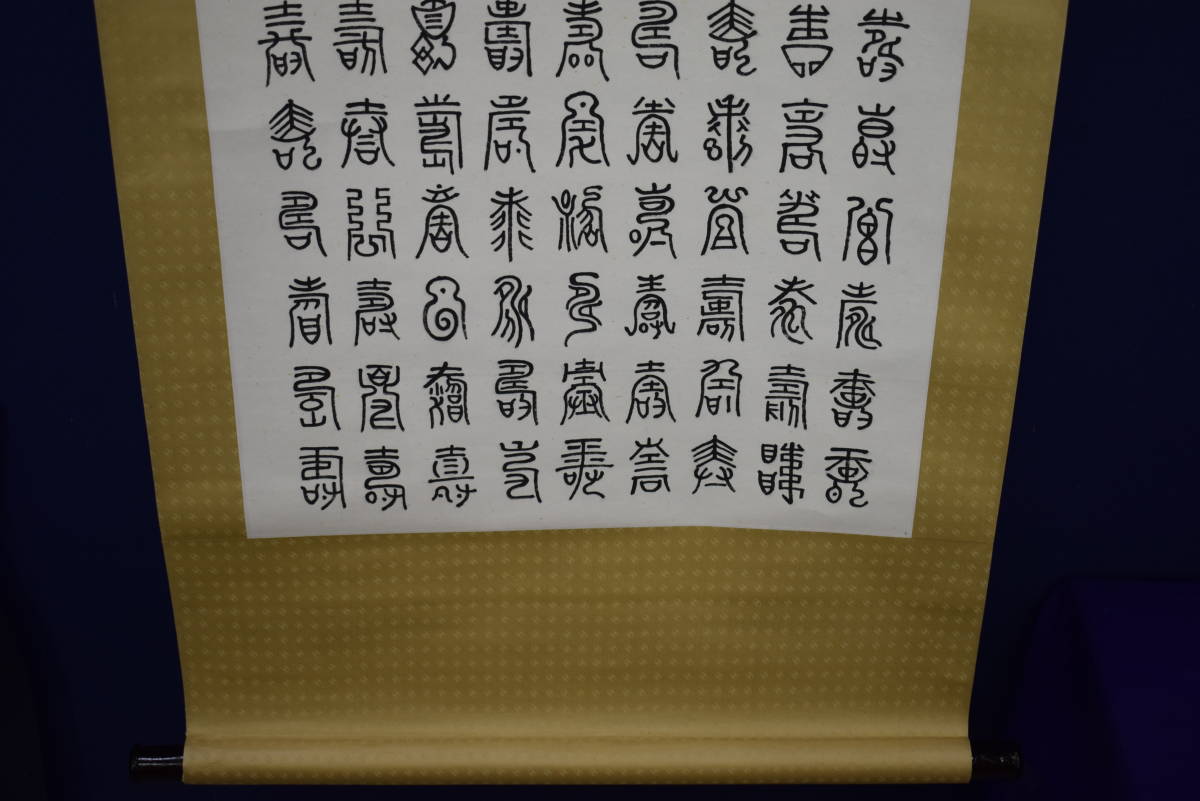 壽壽壽壽壽壽
壽壽壽壽壽壽
壽壽壽壽壽壽
壽壽壽壽壽壽
壽壽壽壽壽壽
壽壽壽壽壽壽
壽壽壽壽壽壽
壽壽壽壽壽壽
壽壽壽壽壽壽